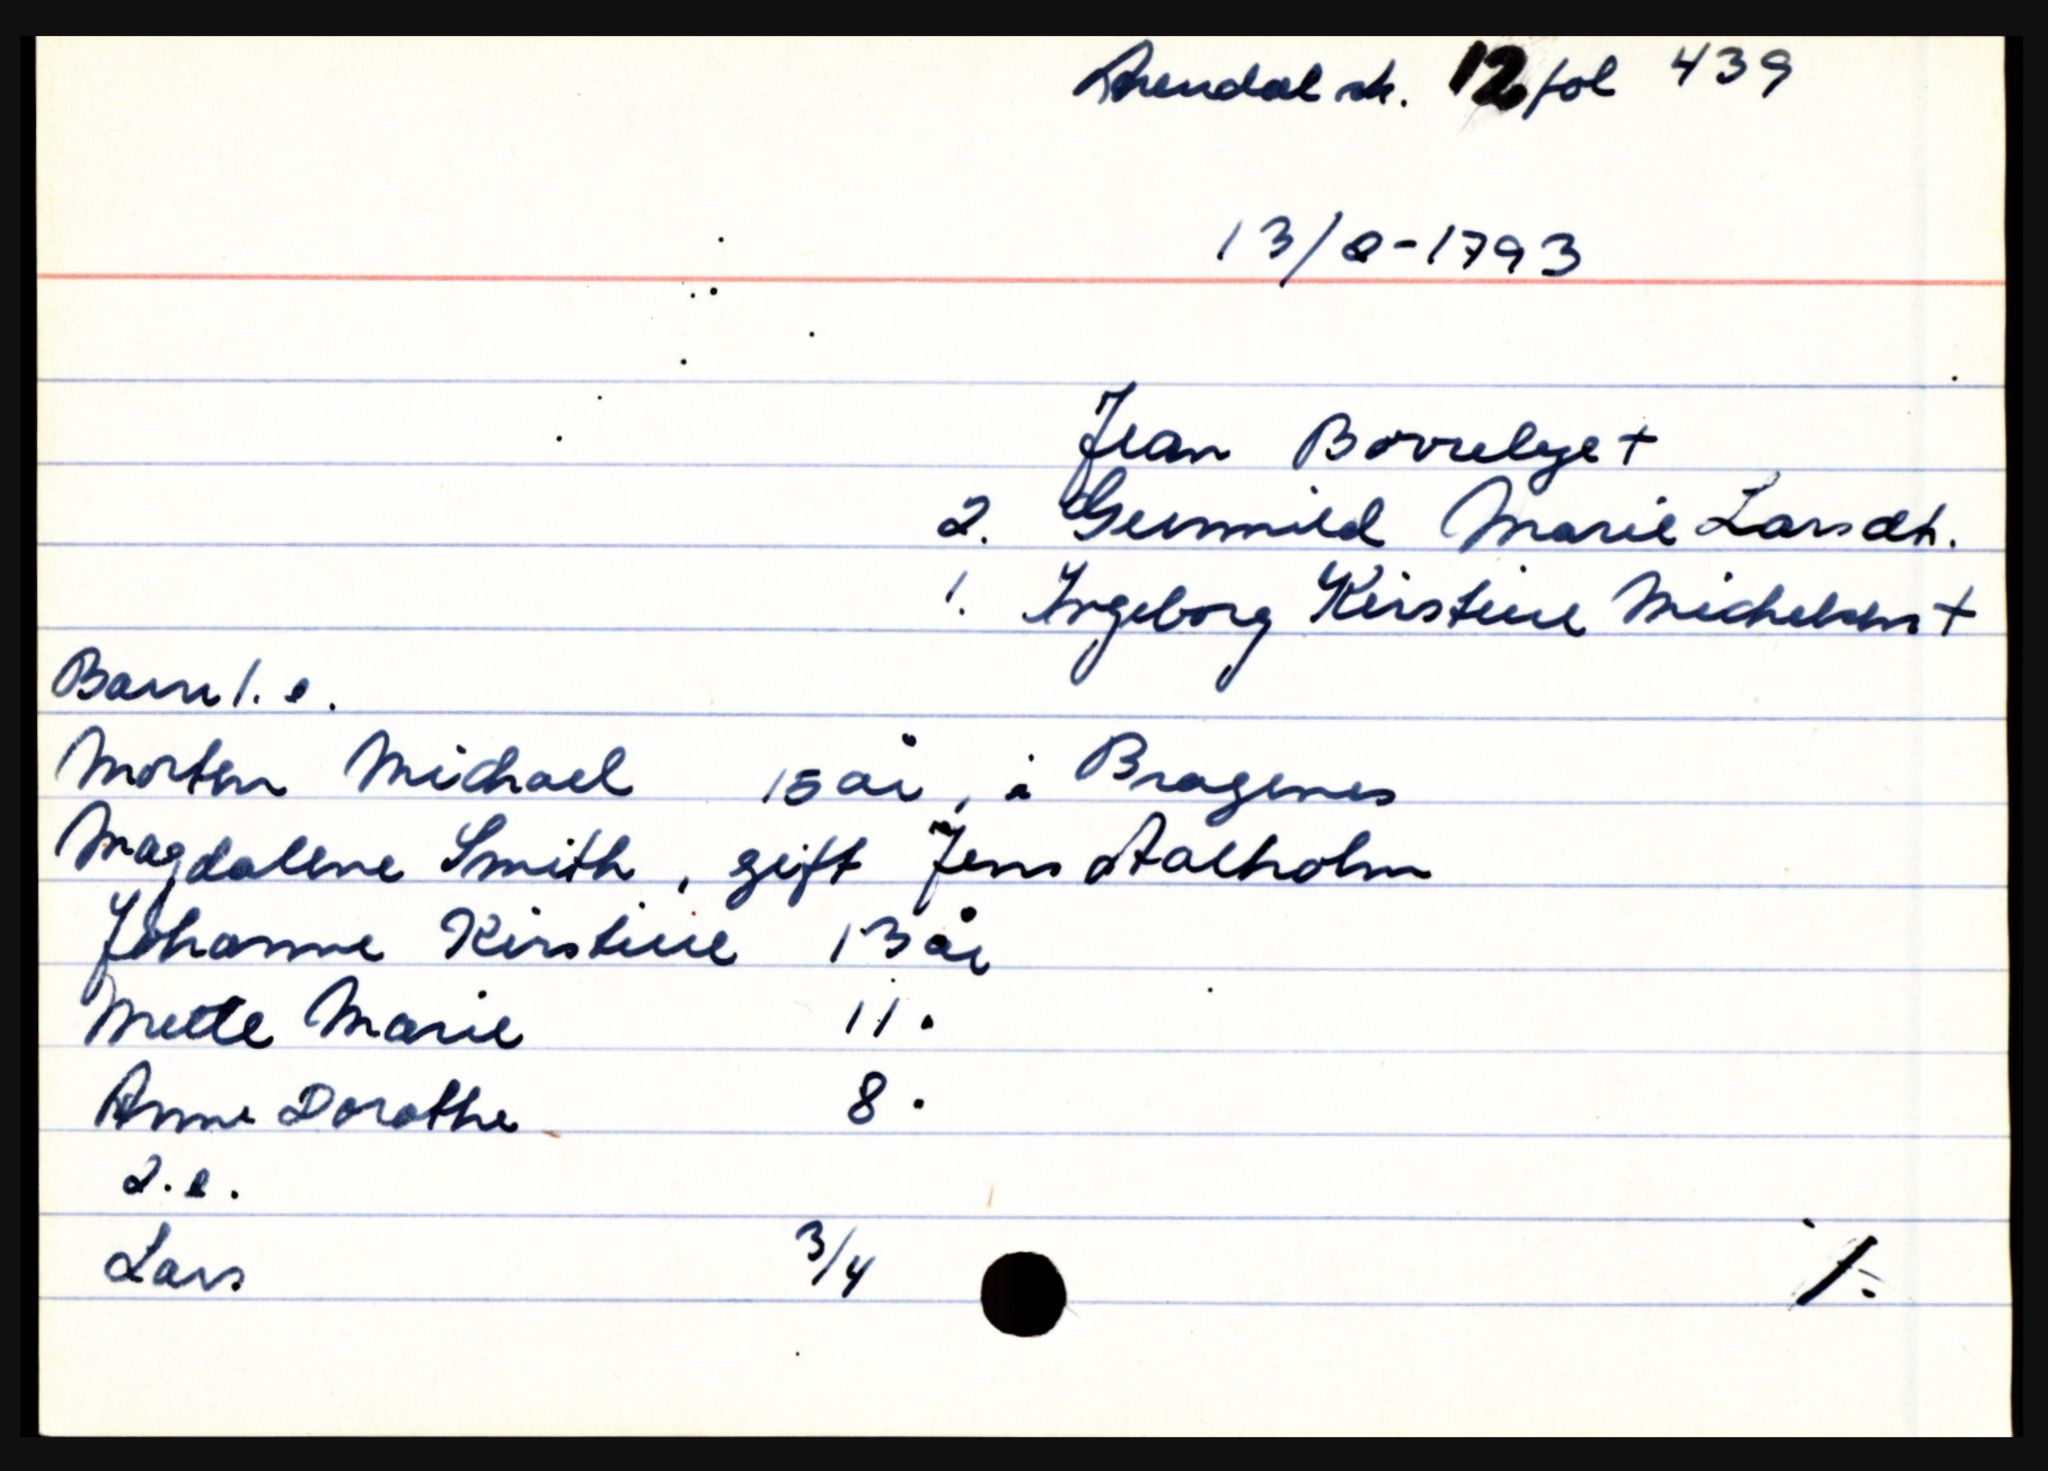 Arendal sk. 12 fol 439
13/8-1793
Jean Borrebye +
2. Gunnild Marie Larsdt.
1. Ingeborg Kirstine Michelsen +
Barn 1. e.
Morten Michael 15 år, i Bragenes
Magdalene Smith, gift Jens Aalholm
Johanne Kirstine 13 år
Mette Marie 11 .
Anne Dorothe 8 .
2. e.
Lars 3/4